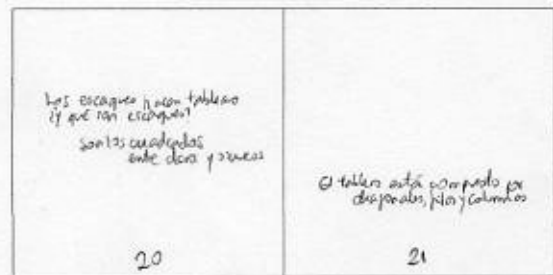 Los escaques hacen tablero
¿y qué son escaques?
son los cuadrados
entre claros y oscuros
20
El tablero está compuesto por
diagonales, filas y columnas
21